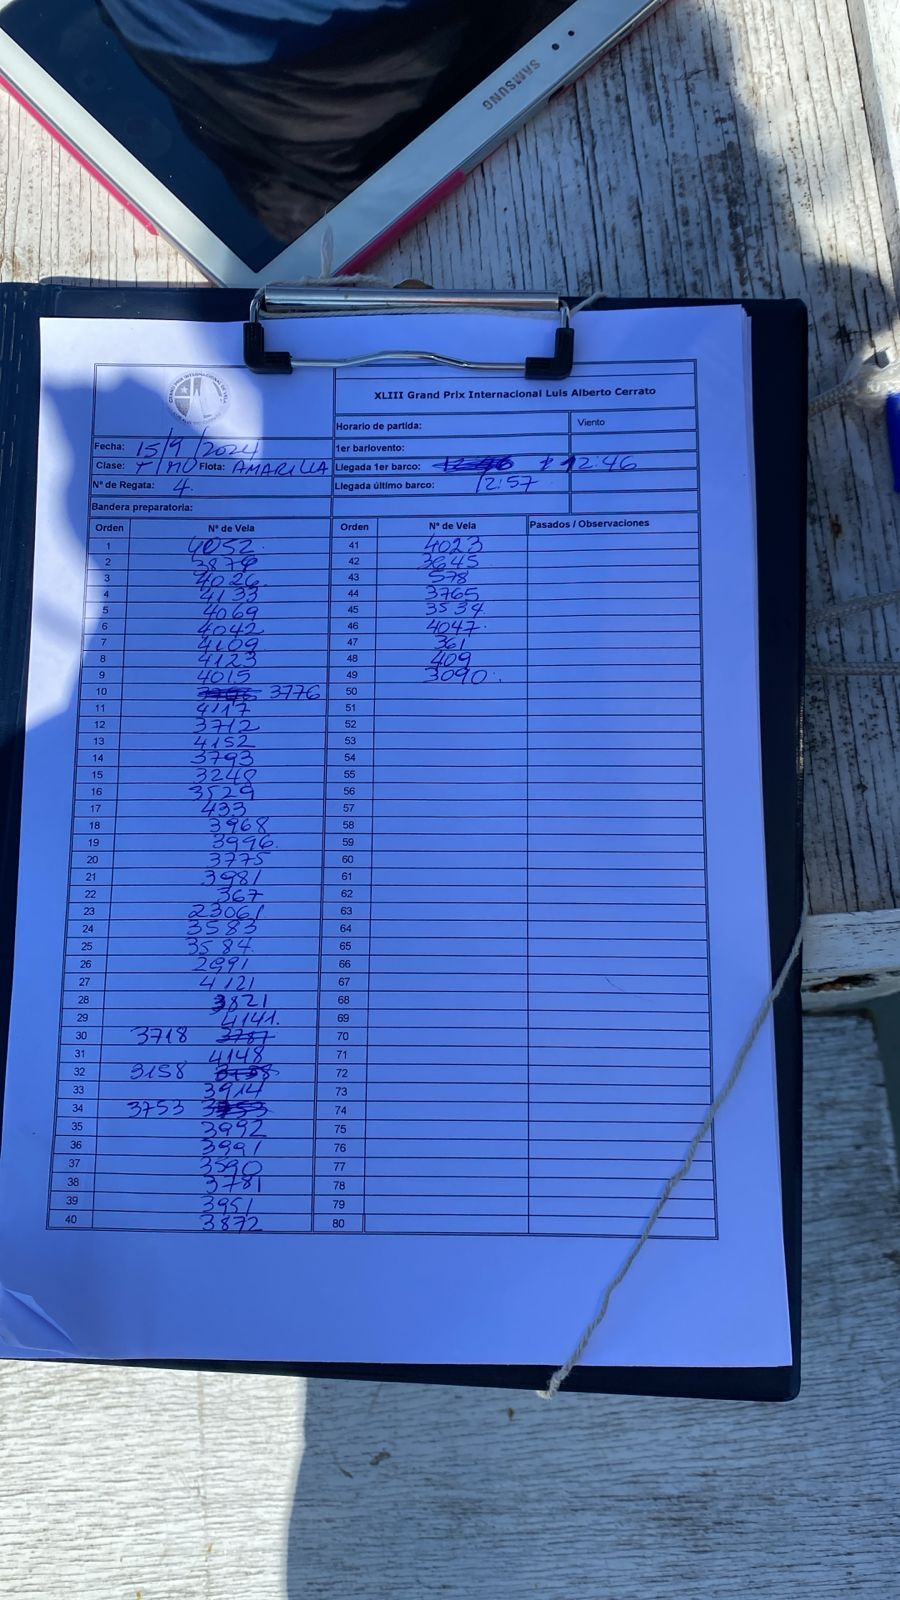 SAMSUNG
XLIII Grand Prix Internacional Luis Alberto Cerrato
Horario de partida: Viento
Fecha: 15/9/2024 1er barlovento:
Clase: Flota: AMARILLA Llegada 1er barco: 12:46
Nº de Regata: 4. Llegada último barco: 12:57
Bandera preparatoria:
Orden Nº de Vela Orden Nº de Vela Pasados / Observaciones
1 4052 41 4023
2 3879 42 3645
3 4026 43 578
4 4133 44 3765
5 4069 45 3534
6 4042 46 4047
7 4109 47 361
8 4123 48 409
9 4015 49 3090
10 3776 50
11 4117 51
12 3712 52
13 4152 53
14 3793 54
15 3248 55
16 3529 56
17 433 57
18 3968 58
19 3996 59
20 3775 60
21 3981 61
22 367 62
23 23061 63
24 3583 64
25 3584 65
26 2991 66
27 4121 67
28 3821 68
29 4141. 69
30 3718 3787 70
31 4148 71
32 3158 72
33 3914 73
34 3753 74
35 3992 75
36 3991 76
37 3590 77
38 3781 78
39 3951 79
40 3872 80